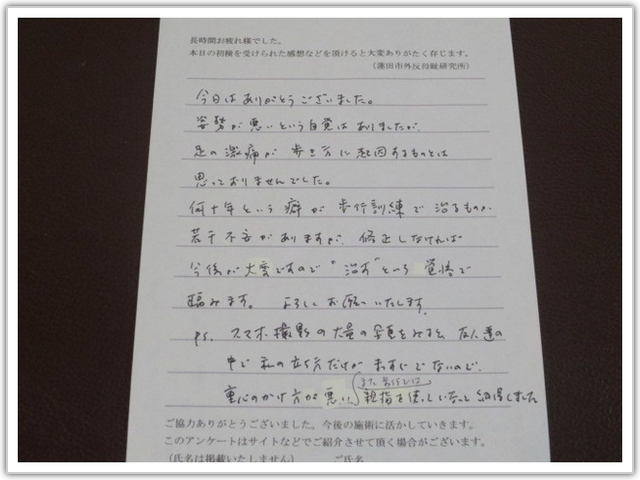 長時間お疲れ様でした。
本日の初検を受けられた感想などを頂けると大変ありがたく存じます。
（蓮田市外反母趾研究所）
今日はありがとうございました。
姿勢が悪いという自覚はありましたが、
足の激痛が歩き方に起因するものとは
思っておりませんでした。
何十年という癖が歩行訓練で治るものか
若干不安がありますが、修正しなければ
今後が大変ですので"治す"という覚悟で
臨みます。よろしくお願いいたします。
ps. スマホ撮影の大量の写真をみると友人達の
中で私の立ち方だけがまっすぐでないので、
重心のかけ方が悪い、
親指を使っていないと納得しました
ご協力ありがとうございました。今後の施術に活かしていきます。
このアンケートはサイトなどでご紹介させて頂く場合がございます。
（氏名は掲載いたしません） ご氏名